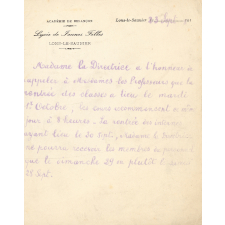 ACADÉMIE DE BESANÇON
Lycée de Jeunes Filles
LONS-LE-SAUNIER
Lons-le-Saunier, 191
Madame la Directrice a l'honneur de
rappeler à Mesdames les Professeurs que la
rentrée des classes a lieu le mardi
1er Octobre, les cours commenceront ce
jour à 8 heures. La rentrée des internes
ayant lieu le 30 Sept., Madame la Directrice
ne pourra recevoir les membres du personnel
que le dimanche 29 ou plutôt le samedi
28 Sept.